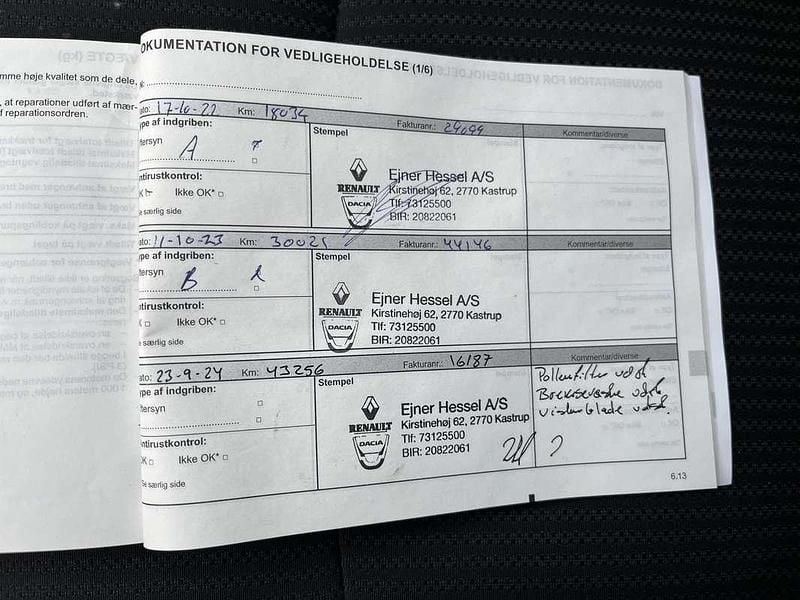 DOKUMENTATION FOR VEDLIGEHOLDELSE (1/6)
mme høje kvalitet som de dele,
, at reparationer udført af mær-
f reparationsordren.
ato: 17-10-22 Km: 18034 Fakturanr.: 29099
ype af indgriben: Stempel Kommentar/diverse
tersyn A
ntirustkontrol:
Ikke OK*
e særlig side
RENAULT
DACIA
Ejner Hessel A/S
Kirstinehøj 62, 2770 Kastrup
Tlf: 73125500
BIR: 20822061
ato: 11-10-23 Km: 30025 Fakturanr.: 44146
ype af indgriben: Stempel Kommentar/diverse
tersyn B
ntirustkontrol:
K Ikke OK*
e særlig side
RENAULT
DACIA
Ejner Hessel A/S
Kirstinehøj 62, 2770 Kastrup
Tlf: 73125500
BIR: 20822061
ato: 23-9-24 Km: 43256 Fakturanr.: 16187
ype af indgriben: Stempel Kommentar/diverse
tersyn
ntirustkontrol:
K Ikke OK*
e særlig side
RENAULT
DACIA
Ejner Hessel A/S
Kirstinehøj 62, 2770 Kastrup
Tlf: 73125500
BIR: 20822061
Pollenfilter udsk
Bremsevæske udsk
Viskerblade udsk.
6.13